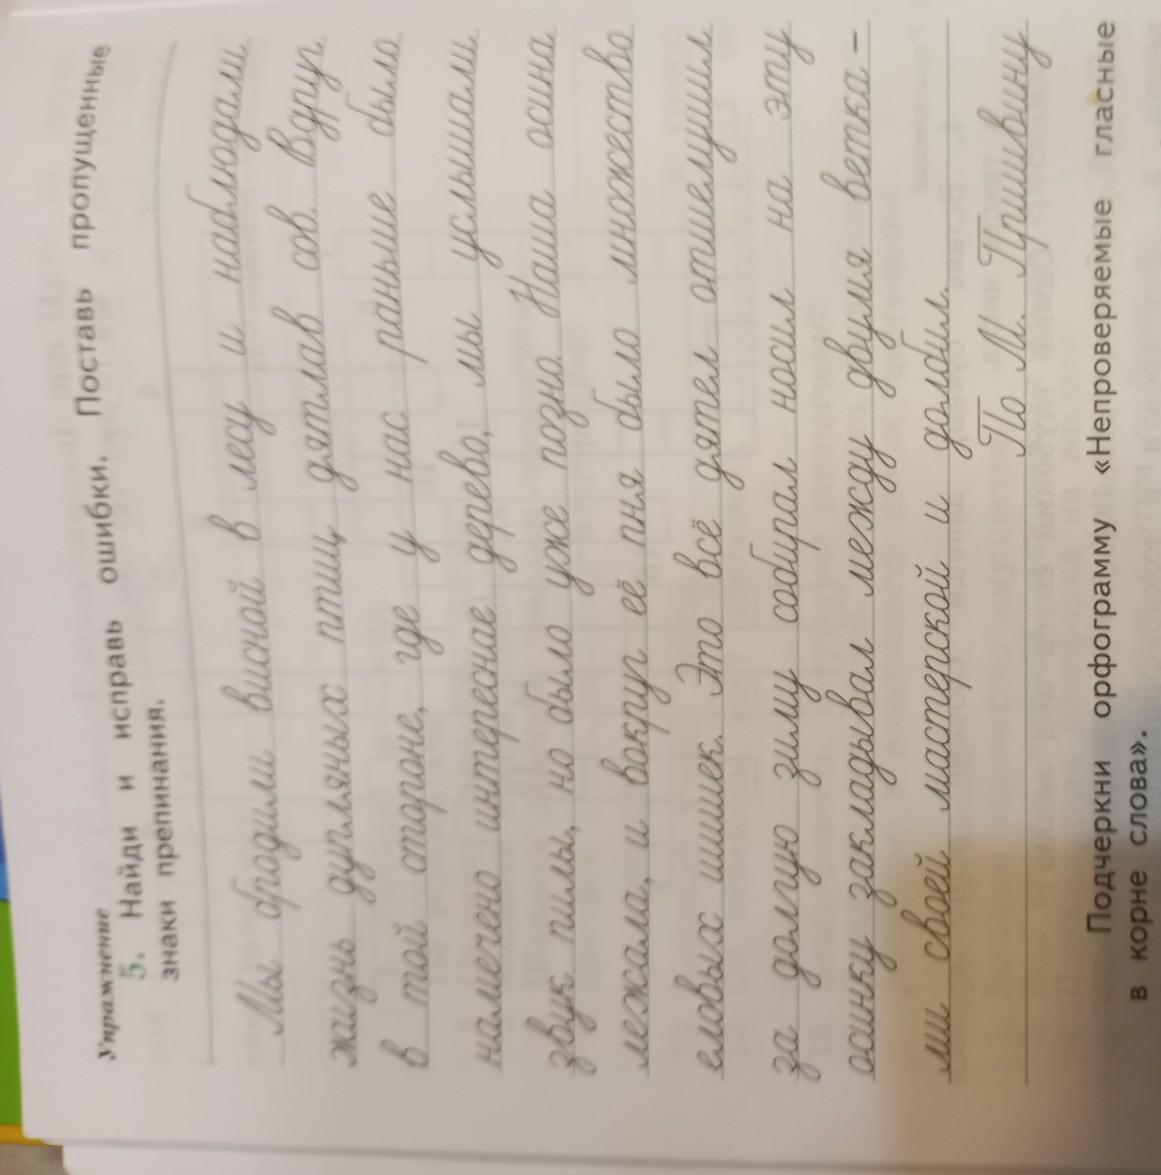 Упражнение
5. Найди и исправь ошибки. Поставь пропущенные
знаки препинания.
Мы бродили висной в лесу и наблюдали
жизнь дупляных птиц дятлав сов. Вдруг
в той стороне, где у нас раньше было
намечено интереснае дерево, мы услышали
звук пилы, но было уже позно. Наша осина
лежала, и вокруг её пня было множество
еловых шишек. Это всё дятел отшелушил
за долгую зиму собирал носил на эту
осинку закладывал между двумя ветка-
ми своей мастерской и долбил.
По М. Пришвину
Подчеркни орфограмму «Непроверяемые гласные
в корне слова».